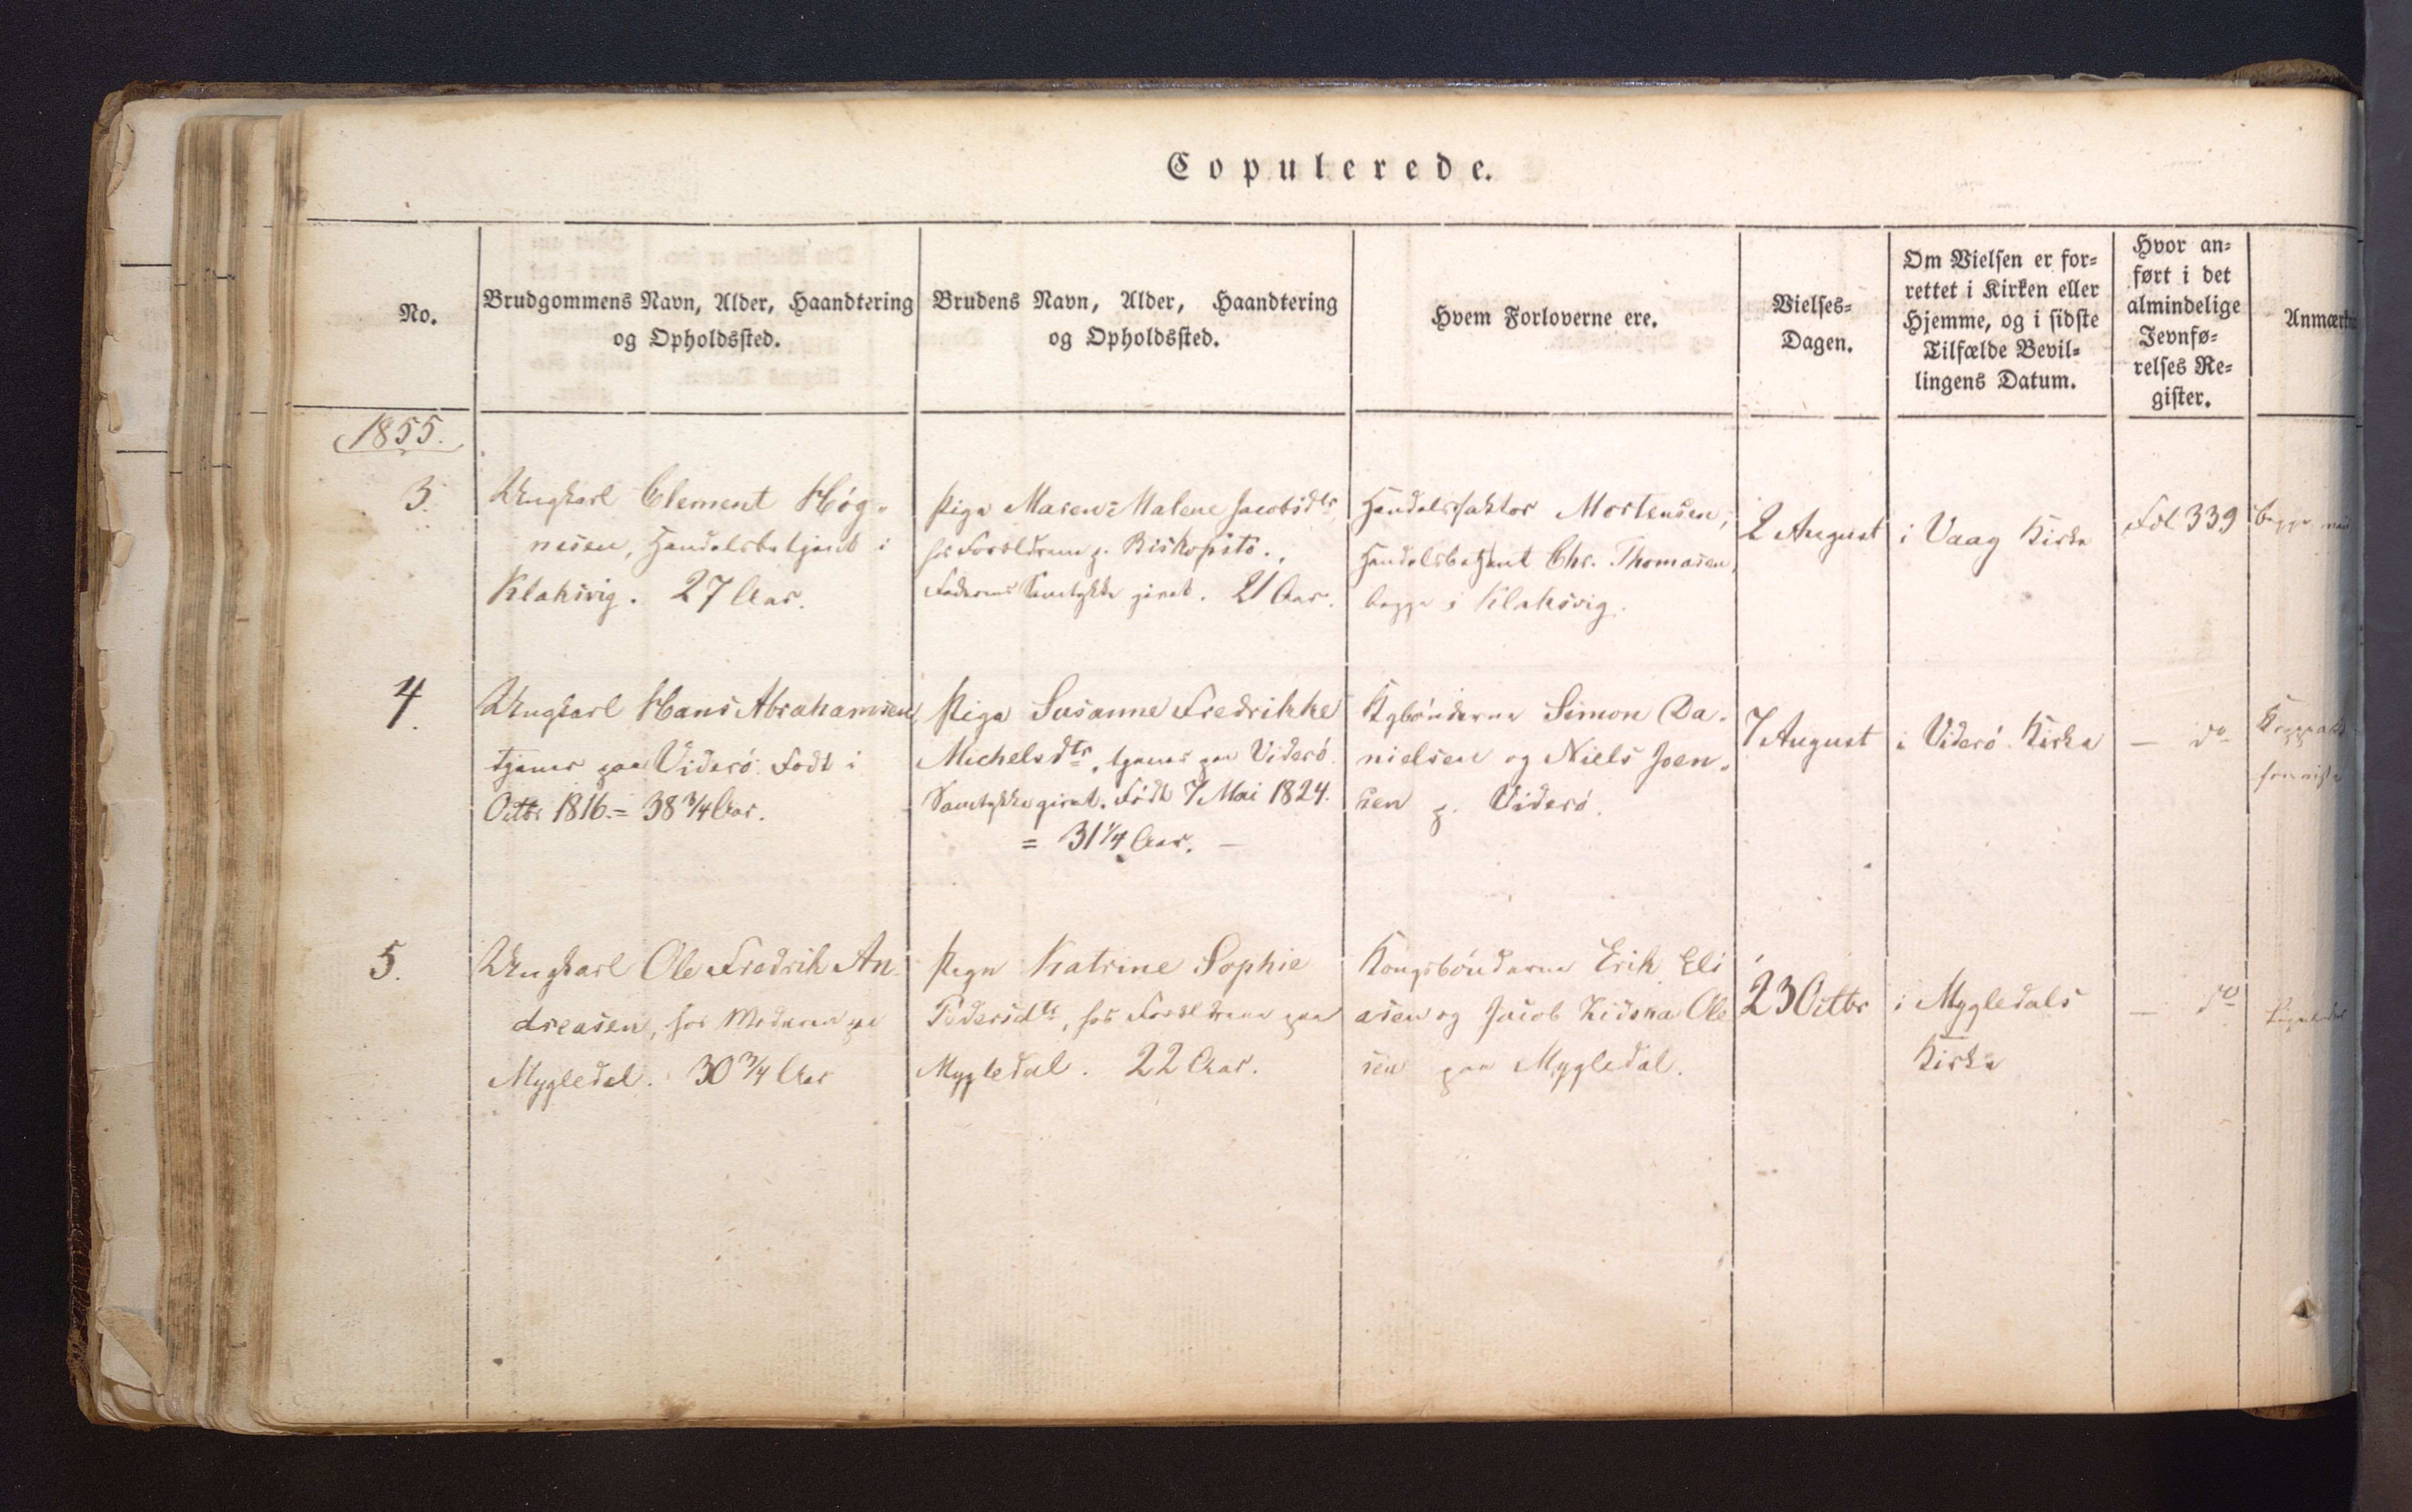 Copulerede.
No.
Brudgommens Navn, Alder, Haandtering
og Opholdssted.
Brudens Navn, Alder, Haandtering
og Opholdssted.
Hvem Forloverne ere.
Vielses-
Dagen.
Om Vielsen er for-
rettet i Kirken eller
Hjemme, og i sidste
Tilfælde Bevil-
lingens Datum.
Hvor an-
ført i det
almindelige
Jevnfø-
relses Re-
gister.
Anmærkn
1855.
3.
Ungkarl Clement Høg-
nesen, Handelsbetjent i
Klaksvig. 27 Aar.
Piga Maren Malene Jacobsdtr
hos Forældrene p. Biskopstö.
Faderens Samtykke givet. 21 Aar.
Handelsfaktor Mortensen,
Handelsbetjent Chr. Thomasen,
begge i Klaksvig.
2 August
i Vaag Kirke
Fol 339
begge
4.
Ungkarl Hans Abrahamsen,
tjener paa Viderö. Födt i
Octbr 1816. = 38 3/4 Aar.
Piga Susanne Fredrikke
Michelsdtr, tjener paa Viderö.
Samtykke givet. Födt 7 Mai 1824.
= 31 1/4 Aar. —
Kgbönderne Simon Da-
nielsen og Niels Joen-
sen p. Viderö.
7 August
i Viderö Kirke
— do
5.
Ungkarl Ole Fredrik An-
dreasen, hos Moderen paa
Mygledal. 30 3/4 Aar
Piga Katrine Sophie
Pedersdtr, hos Forældrene paa
Mygledal. 22 Aar.
Kongsbönderne Erik Eli
asen og Jacob Ole
sen paa Mygledal.
23 Octbr
i Mygledals
Kirke
— do